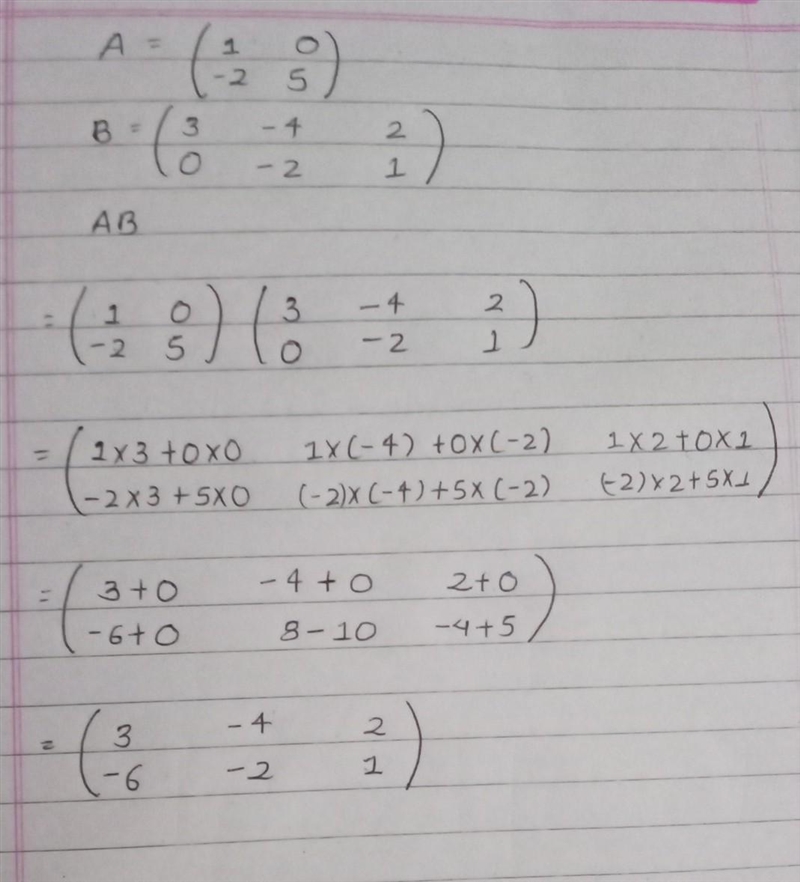 A = ( 1 0
-2 5 )
B = ( 3 -4 2
0 -2 1 )
AB
= ( 1 0
-2 5 ) ( 3 -4 2
0 -2 1 )
= ( 1×3+0×0 1×(-4)+0×(-2) 1×2+0×1
-2×3+5×0 (-2)×(-4)+5×(-2) (-2)×2+5×1 )
= ( 3+0 -4+0 2+0
-6+0 8-10 -4+5 )
= ( 3 -4 2
-6 -2 1 )